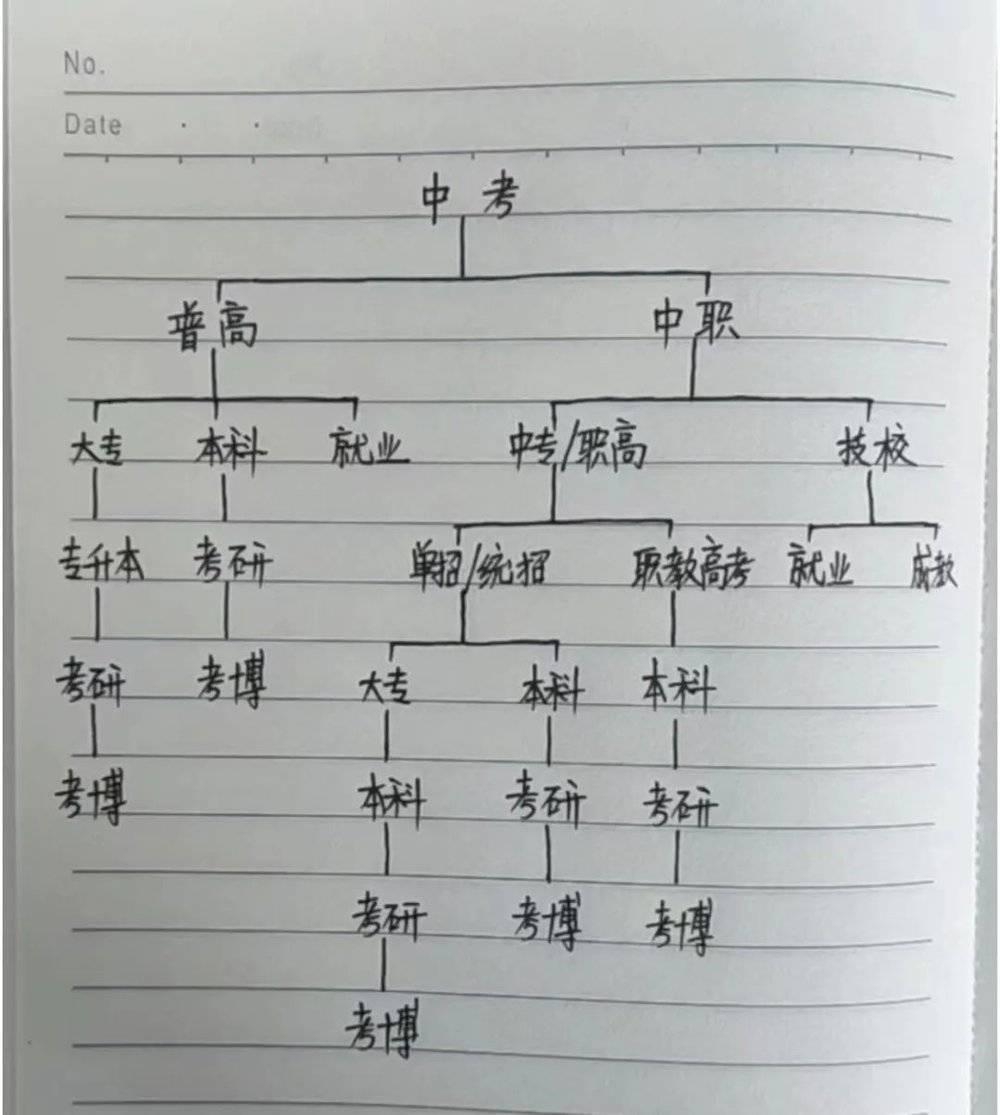 No.
Date
中考
普高 中职
大专 本科 就业 中专/职高 技校
专升本 考研 单招/统招 职教高考 就业 成教
考研 考博 大专 本科 本科
考博 本科 考研 考研
考研 考博 考博
考博